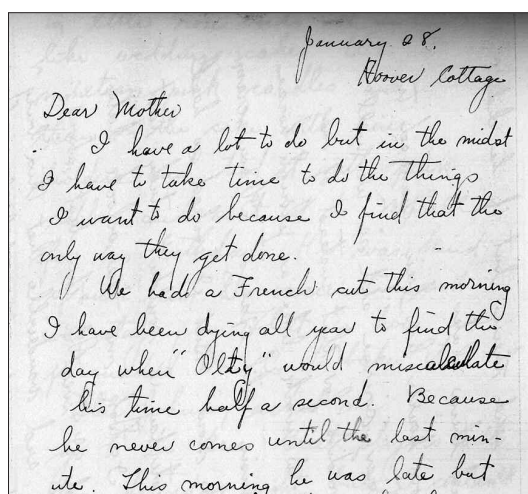 January 28.
Hoover Cottage
Dear Mother
I have a lot to do but in the midst
I have to take time to do the things
I want to do because I find that the
only way they get done.
We had a French cut this morning
I have been dying all year to find the
day when "Olty" would miscalculate
his time half a second. Because
he never comes until the last min-
ute. This morning he was late but